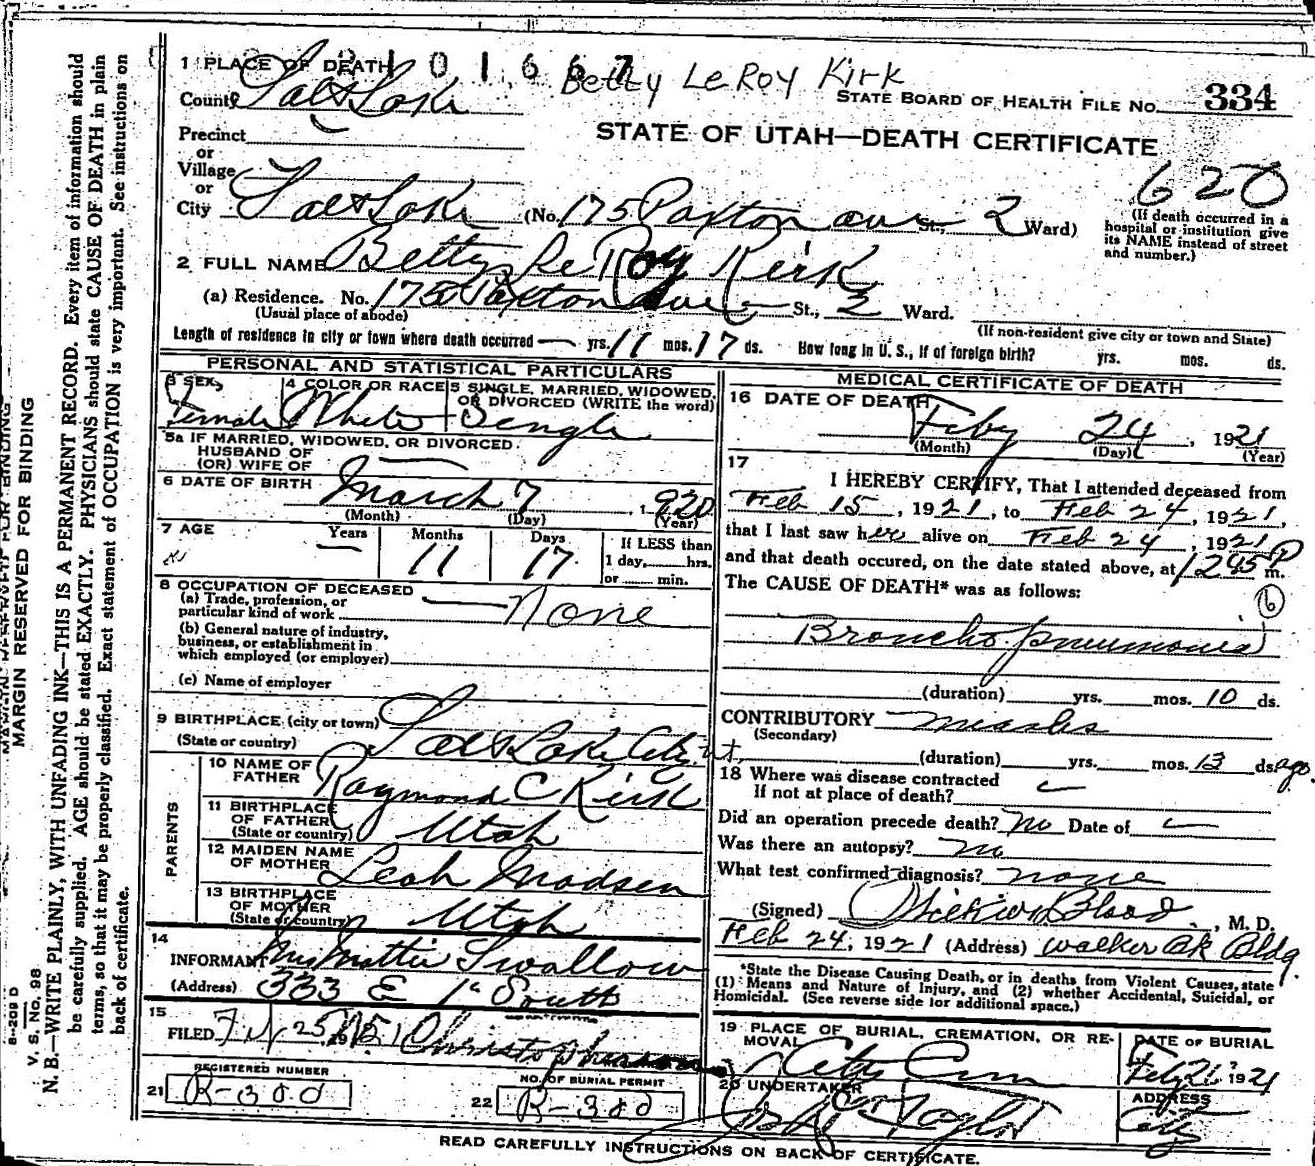 2101667
Betty LeRoy Kirk
1 PLACE OF DEATH
County Salt Lake
STATE BOARD OF HEALTH FILE No. 334
STATE OF UTAH—DEATH CERTIFICATE
Precinct
or
Village
or
620
City Salt Lake (No. 175 Paxton ave St., 2 Ward)
(If death occurred in a hospital or institution give its NAME instead of street and number.)
2 FULL NAME Betty Le Roy Kirk
(a) Residence. No. 175 Paxton ave St., 2 Ward.
(Usual place of abode)
(If non-resident give city or town and State)
Length of residence in city or town where death occurred — yrs. 11 mos. 17 ds. How long in U. S., if of foreign birth? yrs. mos. ds.
PERSONAL AND STATISTICAL PARTICULARS
3 SEX Female
4 COLOR OR RACE White
5 SINGLE, MARRIED, WIDOWED, OR DIVORCED (WRITE the word) Single
5a IF MARRIED, WIDOWED, OR DIVORCED
HUSBAND OF
(OR) WIFE OF —
6 DATE OF BIRTH March 7, 1920
(Month) (Day) (Year)
7 AGE Years Months Days If LESS than
— 11 17 1 day, hrs.
or min.
8 OCCUPATION OF DECEASED
(a) Trade, profession, or
particular kind of work — None
(b) General nature of industry,
business, or establishment in
which employed (or employer)
(c) Name of employer
9 BIRTHPLACE (city or town) Salt Lake City, ut,
(State or country)
PARENTS
10 NAME OF FATHER Raymond C Kirk
11 BIRTHPLACE OF FATHER Utah
(State or country)
12 MAIDEN NAME OF MOTHER Leah Madsen
13 BIRTHPLACE OF MOTHER Utah
(State or country)
14
INFORMANT Mrs Mattie Swallow
(Address) 333 E 1st South
15
FILED 25
REGISTERED NUMBER
21 R-300
NO. OF BURIAL PERMIT
22 R-300
MEDICAL CERTIFICATE OF DEATH
16 DATE OF DEATH
Feby 24, 1921
(Month) (Day) (Year)
17
I HEREBY CERTIFY, That I attended deceased from
Feb 15, 1921, to Feb 24, 1921,
that I last saw her alive on Feb 24, 1921
and that death occured, on the date stated above, at 1245 P m.
The CAUSE OF DEATH* was as follows:
6
Broncho pneumonia
(duration) yrs. mos. 10 ds.
CONTRIBUTORY Measles
(Secondary)
(duration) yrs. mos. 13 ds. ago.
18 Where was disease contracted
If not at place of death? —
Did an operation precede death? No Date of —
Was there an autopsy? no
What test confirmed diagnosis? none
(Signed) M. D.
Feb 24, 1921 (Address) Walker Bk Bldg.
*State the Disease Causing Death, or in deaths from Violent Causes, state
(1) Means and Nature of Injury, and (2) whether Accidental, Suicidal, or
Homicidal. (See reverse side for additional space.)
19 PLACE OF BURIAL, CREMATION, OR REMOVAL City Cem
DATE OF BURIAL Feby 26, 1921
20 UNDERTAKER Taylor
ADDRESS City
READ CAREFULLY INSTRUCTIONS ON BACK OF CERTIFICATE.
MARGIN RESERVED FOR BINDING
V. S. No. 98
N. B.—WRITE PLAINLY, WITH UNFADING INK—THIS IS A PERMANENT RECORD. Every item of information should
be carefully supplied. AGE should be stated EXACTLY. PHYSICIANS should state CAUSE OF DEATH in plain
terms, so that it may be properly classified. Exact statement of OCCUPATION is very important. See instructions on
back of certificate.